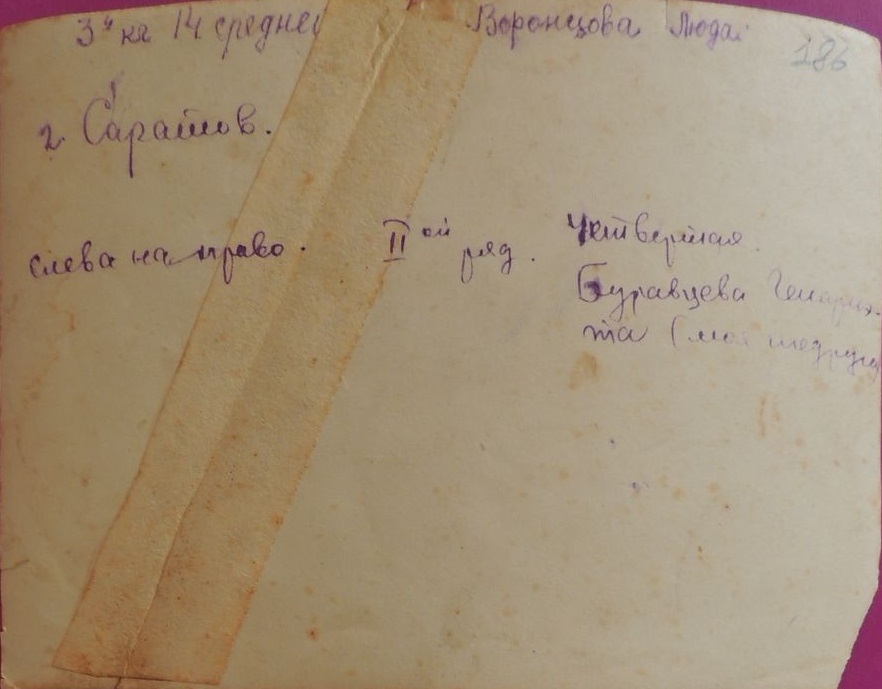 3й кл 14 средней Воронцова Люда
186
г. Саратов.
слева на право. IIой ряд. Четвертая
Буравцева Генарие-
та (моя подруга)